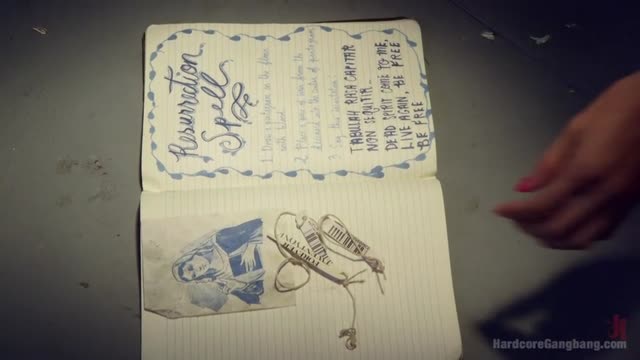 Resurrection
Spell
1. Draw a pentagram on the floor
with blood
2. Place a pair of from the
deceased into the center of pentagram
3. Say this incantation:
TABULLAH RASA CAPITAR
NON SEQUITIR -
DEAD SPIRIT COME TO ME,
LIVE AGAIN, BE FREE
BE FREE
HardcoreGangbang.com